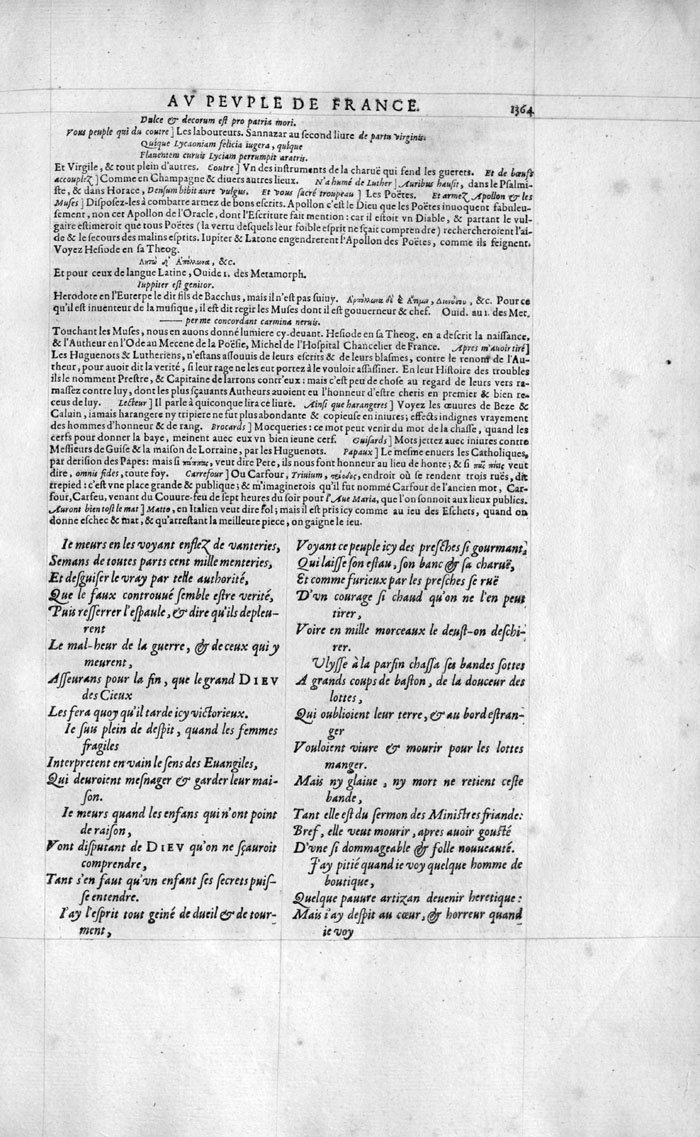 AV PEVPLE DE FRANCE.
1364
Dulce & decorum est pro patria mori.
Vous peuple qui du coutre] Les laboureurs. Sannazar au second liure de partu virginis.
Quique Lycaoniam felicia iugera, quique
Flauentem curuis Lyciam perrumpit aratris.
Et Virgile, & tout plein d'autres. Coutre] Vn des instruments de la charuë qui fend les guerets. Et de bœufs
accouplez] Comme en Champagne & diuers autres lieux. N'a humé de Luther] Auribus hausit, dans le Psalmi-
ste, & dans Horace, Densum bibit aure vulgus. Et vous sacré troupeau] Les Poëtes. Et armez Apollon & les
Muses] Disposez-les à combatre armez de bons escrits. Apollon c'est le Dieu que les Poëtes inuoquent fabuleu-
sement, non cet Apollon de l'Oracle, dont l'Escriture fait mention: car il estoit vn Diable, & partant le vul-
gaire estimeroit que tous Poëtes (la vertu desquels leur foible esprit ne sçait comprendre) rechercheroient l'ai-
de & le secours des malins esprits. Iupiter & Latone engendrerent l'Apollon des Poëtes, comme ils feignent.
Voyez Hesiode en sa Theog.
Λητὼ δ' Ἀπόλλωνα, &c.
Et pour ceux de langue Latine, Ouide 1. des Metamorph.
Iuppiter est genitor.
Herodote en l'Euterpe le dit fils de Bacchus, mais il n'est pas suiuy. Ἀπόλλωνα δὲ &c. Pour ce
qu'il est inuenteur de la musique, il est dit regir les Muses dont il est gouuerneur & chef. Ouid. au 1. des Met.
—— per me concordant carmina neruis.
Touchant les Muses, nous en auons donné lumiere cy-deuant. Hesiode en sa Theog. en a descrit la naissance,
& l'Autheur en l'Ode au Mecene de la Poësie, Michel de l'Hospital Chancelier de France. Apres m'auoir tiré]
Les Huguenots & Lutheriens, n'estans assouuis de leurs escrits & de leurs blasmes, contre le renom de l'Au-
theur, pour auoir dit la verité, si leur rage ne les eut portez à le vouloir assassiner. En leur Histoire des troubles
ils le nomment Prestre, & Capitaine de larrons contr'eux: mais c'est peu de chose au regard de leurs vers ra-
massez contre luy, dont les plus sçauants Autheurs auoient eu l'honneur d'estre cheris en premier & bien re-
ceus de luy. Lecteur] Il parle à quiconque lira ce liure. Ainsi que harangeres] Voyez les œuures de Beze &
Caluin, iamais harangere ny tripiere ne fut plus abondante & copieuse en iniures; effects indignes vrayement
des hommes d'honneur & de rang. Brocards] Mocqueries: ce mot peut venir du mot de la chasse, quand les
cerfs pour donner la baye, meinent auec eux vn bien ieune cerf. Guisards] Mots jettez auec iniures contre
Messieurs de Guise & la maison de Lorraine, par les Huguenots. Papaux] Le mesme enuers les Catholiques,
par derision des Papes: mais si πάππας, veut dire Pere, ils nous font honneur au lieu de honte; & si veut
dire, omnis fides, toute foy. Carrefour] Ou Carfour, Triuium, endroit où se rendent trois ruës, dit
trepied: c'est vne place grande & publique; & m'imaginerois qu'il fut nommé Carfour de l'ancien mot, Car-
four, Carfeu, venant du Couure-feu de sept heures du soir pour l'Aue Maria, que l'on sonnoit aux lieux publics.
Auront bien tost le mat] Matto, en Italien veut dire fol; mais il est pris icy comme au ieu des Eschets, quand on
donne eschec & mat, & qu'arrestant la meilleure piece, on gaigne le ieu.
Ie meurs en les voyant enflez de vanteries,
Semans de toutes parts cent mille menteries,
Et desguiser le vray par telle authorité,
Que le faux controuué semble estre verité,
Puis resserrer l'espaule, & dire qu'ils depleu-
rent
Le mal-heur de la guerre, & de ceux qui y
meurent,
Asseurans pour la fin, que le grand DIEV
des Cieux
Les fera quoy qu'il tarde icy victorieux.
Ie suis plein de despit, quand les femmes
fragiles
Interpretent en vain le sens des Euangiles,
Qui deuroient mesnager & garder leur mai-
son.
Ie meurs quand les enfans qui n'ont point
de raison,
Vont disputant de DIEV qu'on ne sçauroit
comprendre,
Tant s'en faut qu'vn enfant ses secrets puis-
se entendre.
I'ay l'esprit tout geiné de dueil & de tour-
ment,
Voyant ce peuple icy des presches si gourmant,
Qui laisse son estau, son banc & sa charuë,
Et comme furieux par les presches se ruë
D'vn courage si chaud qu'on ne l'en peut
tirer,
Voire en mille morceaux le deust-on deschi-
rer.
Vlysse à la parfin chassa ses bandes sottes
A grands coups de baston, de la douceur des
lottes,
Qui oublioient leur terre, & au bord estran-
ger
Vouloient viure & mourir pour les lottes
manger.
Mais ny glaiue, ny mort ne retient ceste
bande,
Tant elle est du sermon des Ministres friande:
Bref, elle veut mourir, apres auoir gousté
D'vne si dommageable & folle nouueauté.
J'ay pitié quand ie voy quelque homme de
boutique,
Quelque pauure artizan deuenir heretique:
Mais i'ay despit au cœur, & horreur quand
ie voy